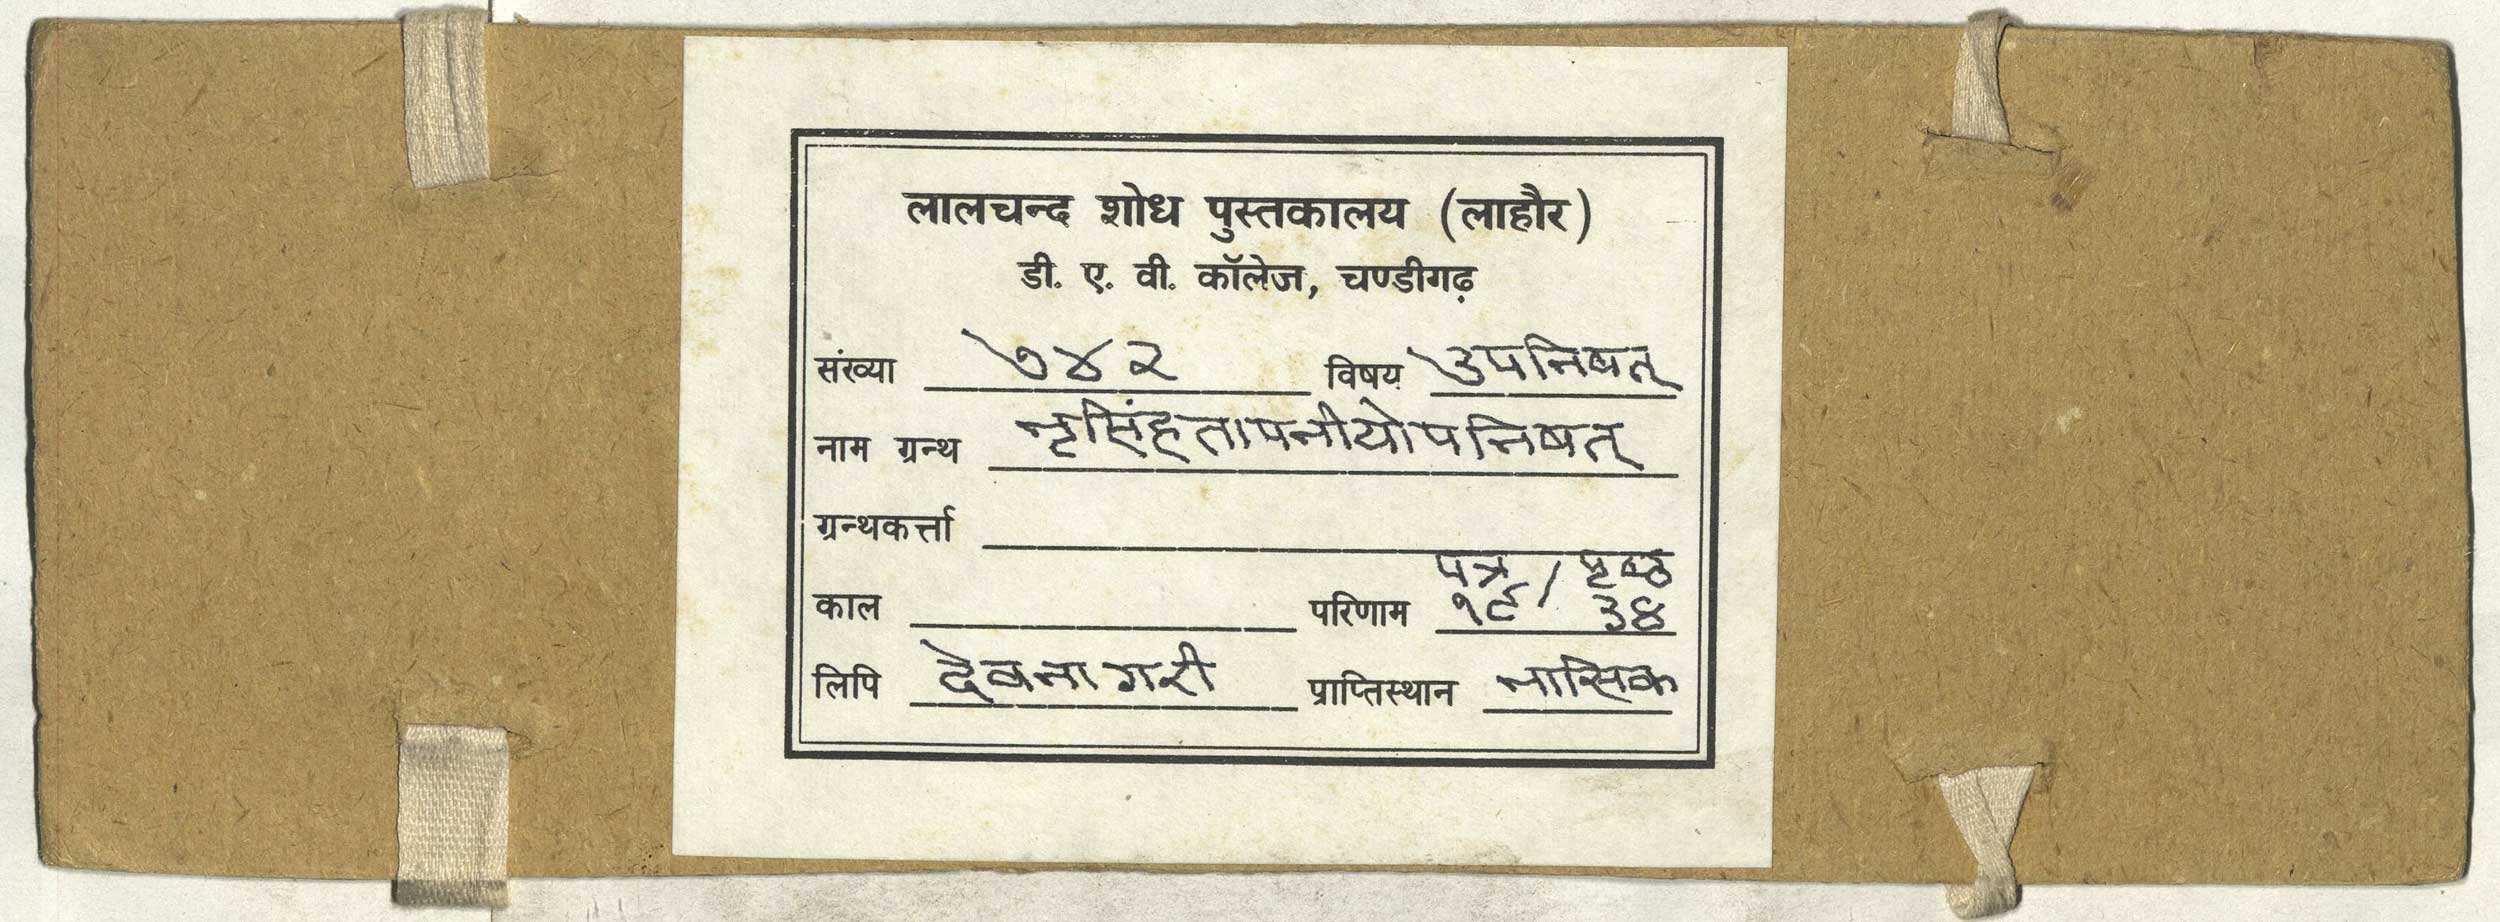 लालचन्द शोध पुस्तकालय (लाहौर)
डी. ए. वी. कॉलेज, चण्डीगढ़
संख्या ७४२ विषय उपनिषत्
नाम ग्रन्थ नृसिंहतापनीयोपनिषत्
ग्रन्थकर्त्ता
पत्र / पृष्ठ
काल परिणाम १९ / ३४
लिपि देवनागरी प्राप्तिस्थान नासिक